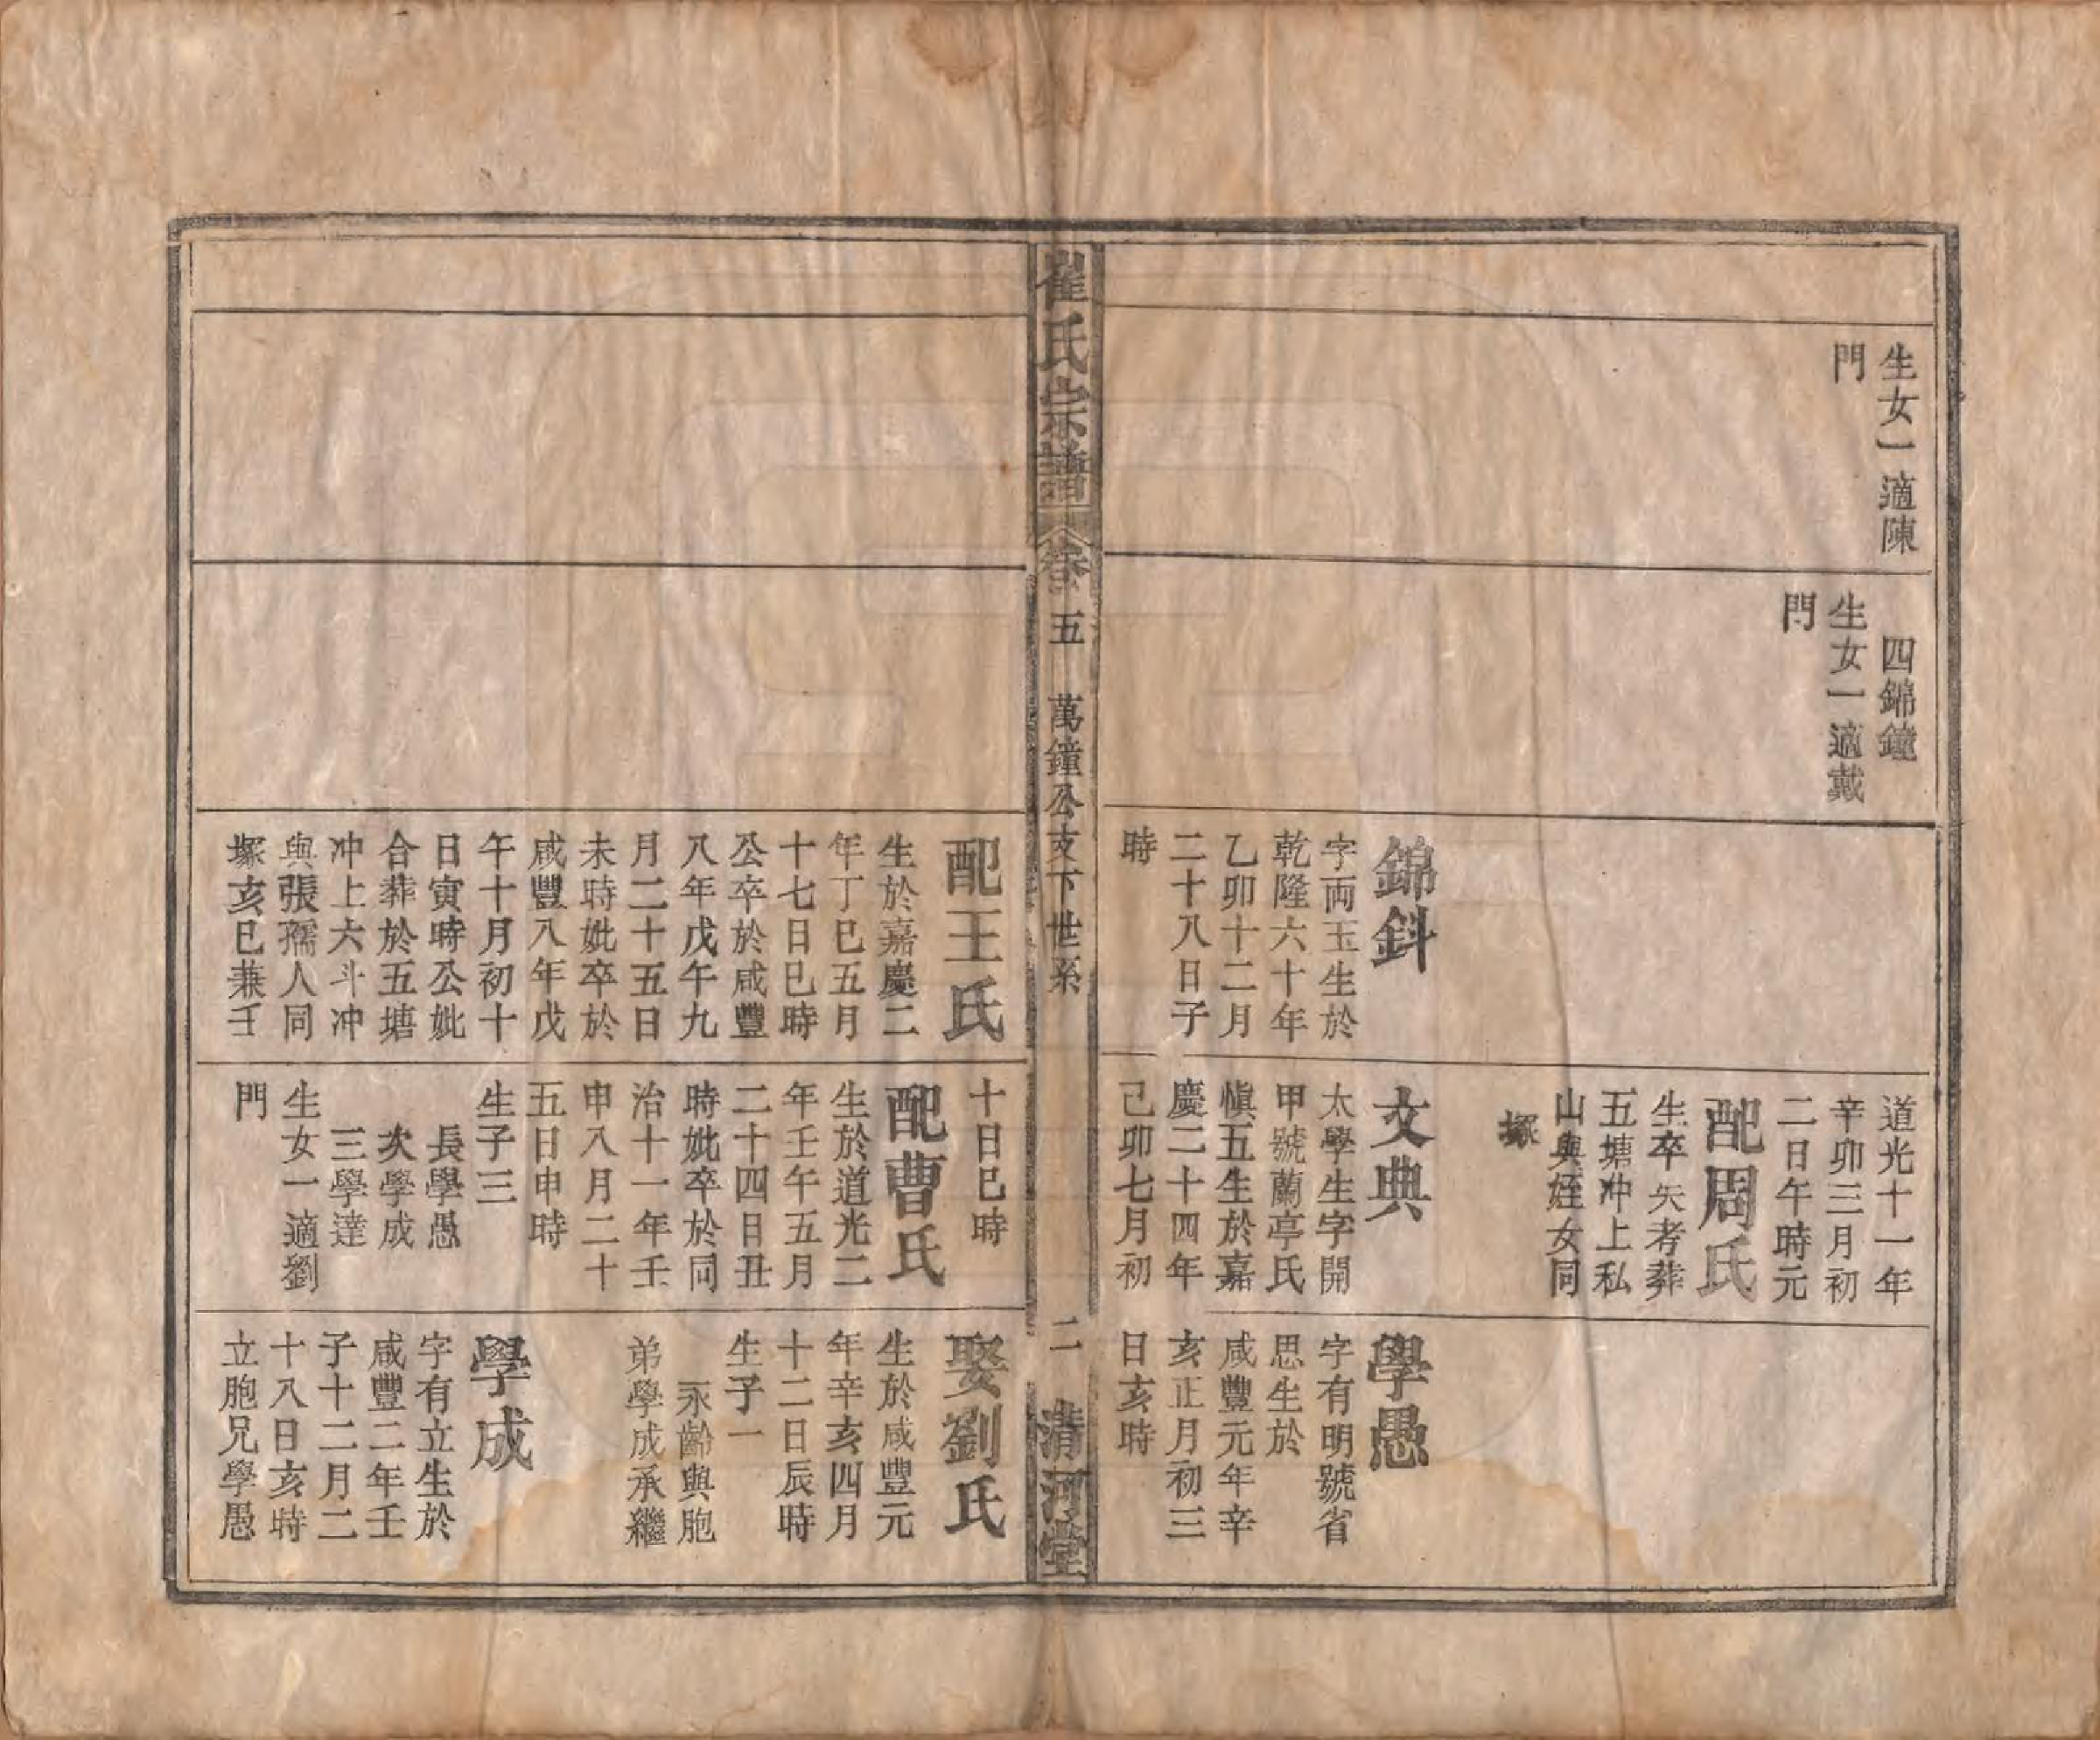 生女一適陳
門
四錦鐘
生女一適戴
門
錦鈄
字両玉生於
乾隆六十年
乙卯十二月
二十八日子
時
道光十一年
辛卯三月初
二日午時元
配周氏
生卒失考葬
五塘冲上私
山與姪女同
塚
文典
太學生字開
甲號蘭亭氏
慎五生於嘉
慶二十四年
己卯七月初
學愚
字有明號省
思生於
咸豐元年辛
亥正月初三
日亥時
崔氏宗譜
卷五
萬鐘公支下世系
二
清河堂
配王氏
生於嘉慶二
年丁巳五月
十七日巳時
公卒於咸豐
八年戊午九
月二十五日
未時妣卒於
咸豐八年戊
午十月初十
日寅時公妣
合葬於五塘
冲上六斗冲
與張孺人同
塚亥巳兼壬
十日巳時
配曹氏
生於道光二
年壬午五月
二十四日丑
時妣卒於同
治十一年壬
申八月二十
五日申時
生子三
長學愚
次學成
三學達
生女一適劉
門
娶劉氏
生於咸豐元
年辛亥四月
十二日辰時
生子一
永齡與胞
弟學成承繼
學成
字有立生於
咸豐二年壬
子十二月二
十八日亥時
立胞兄學愚